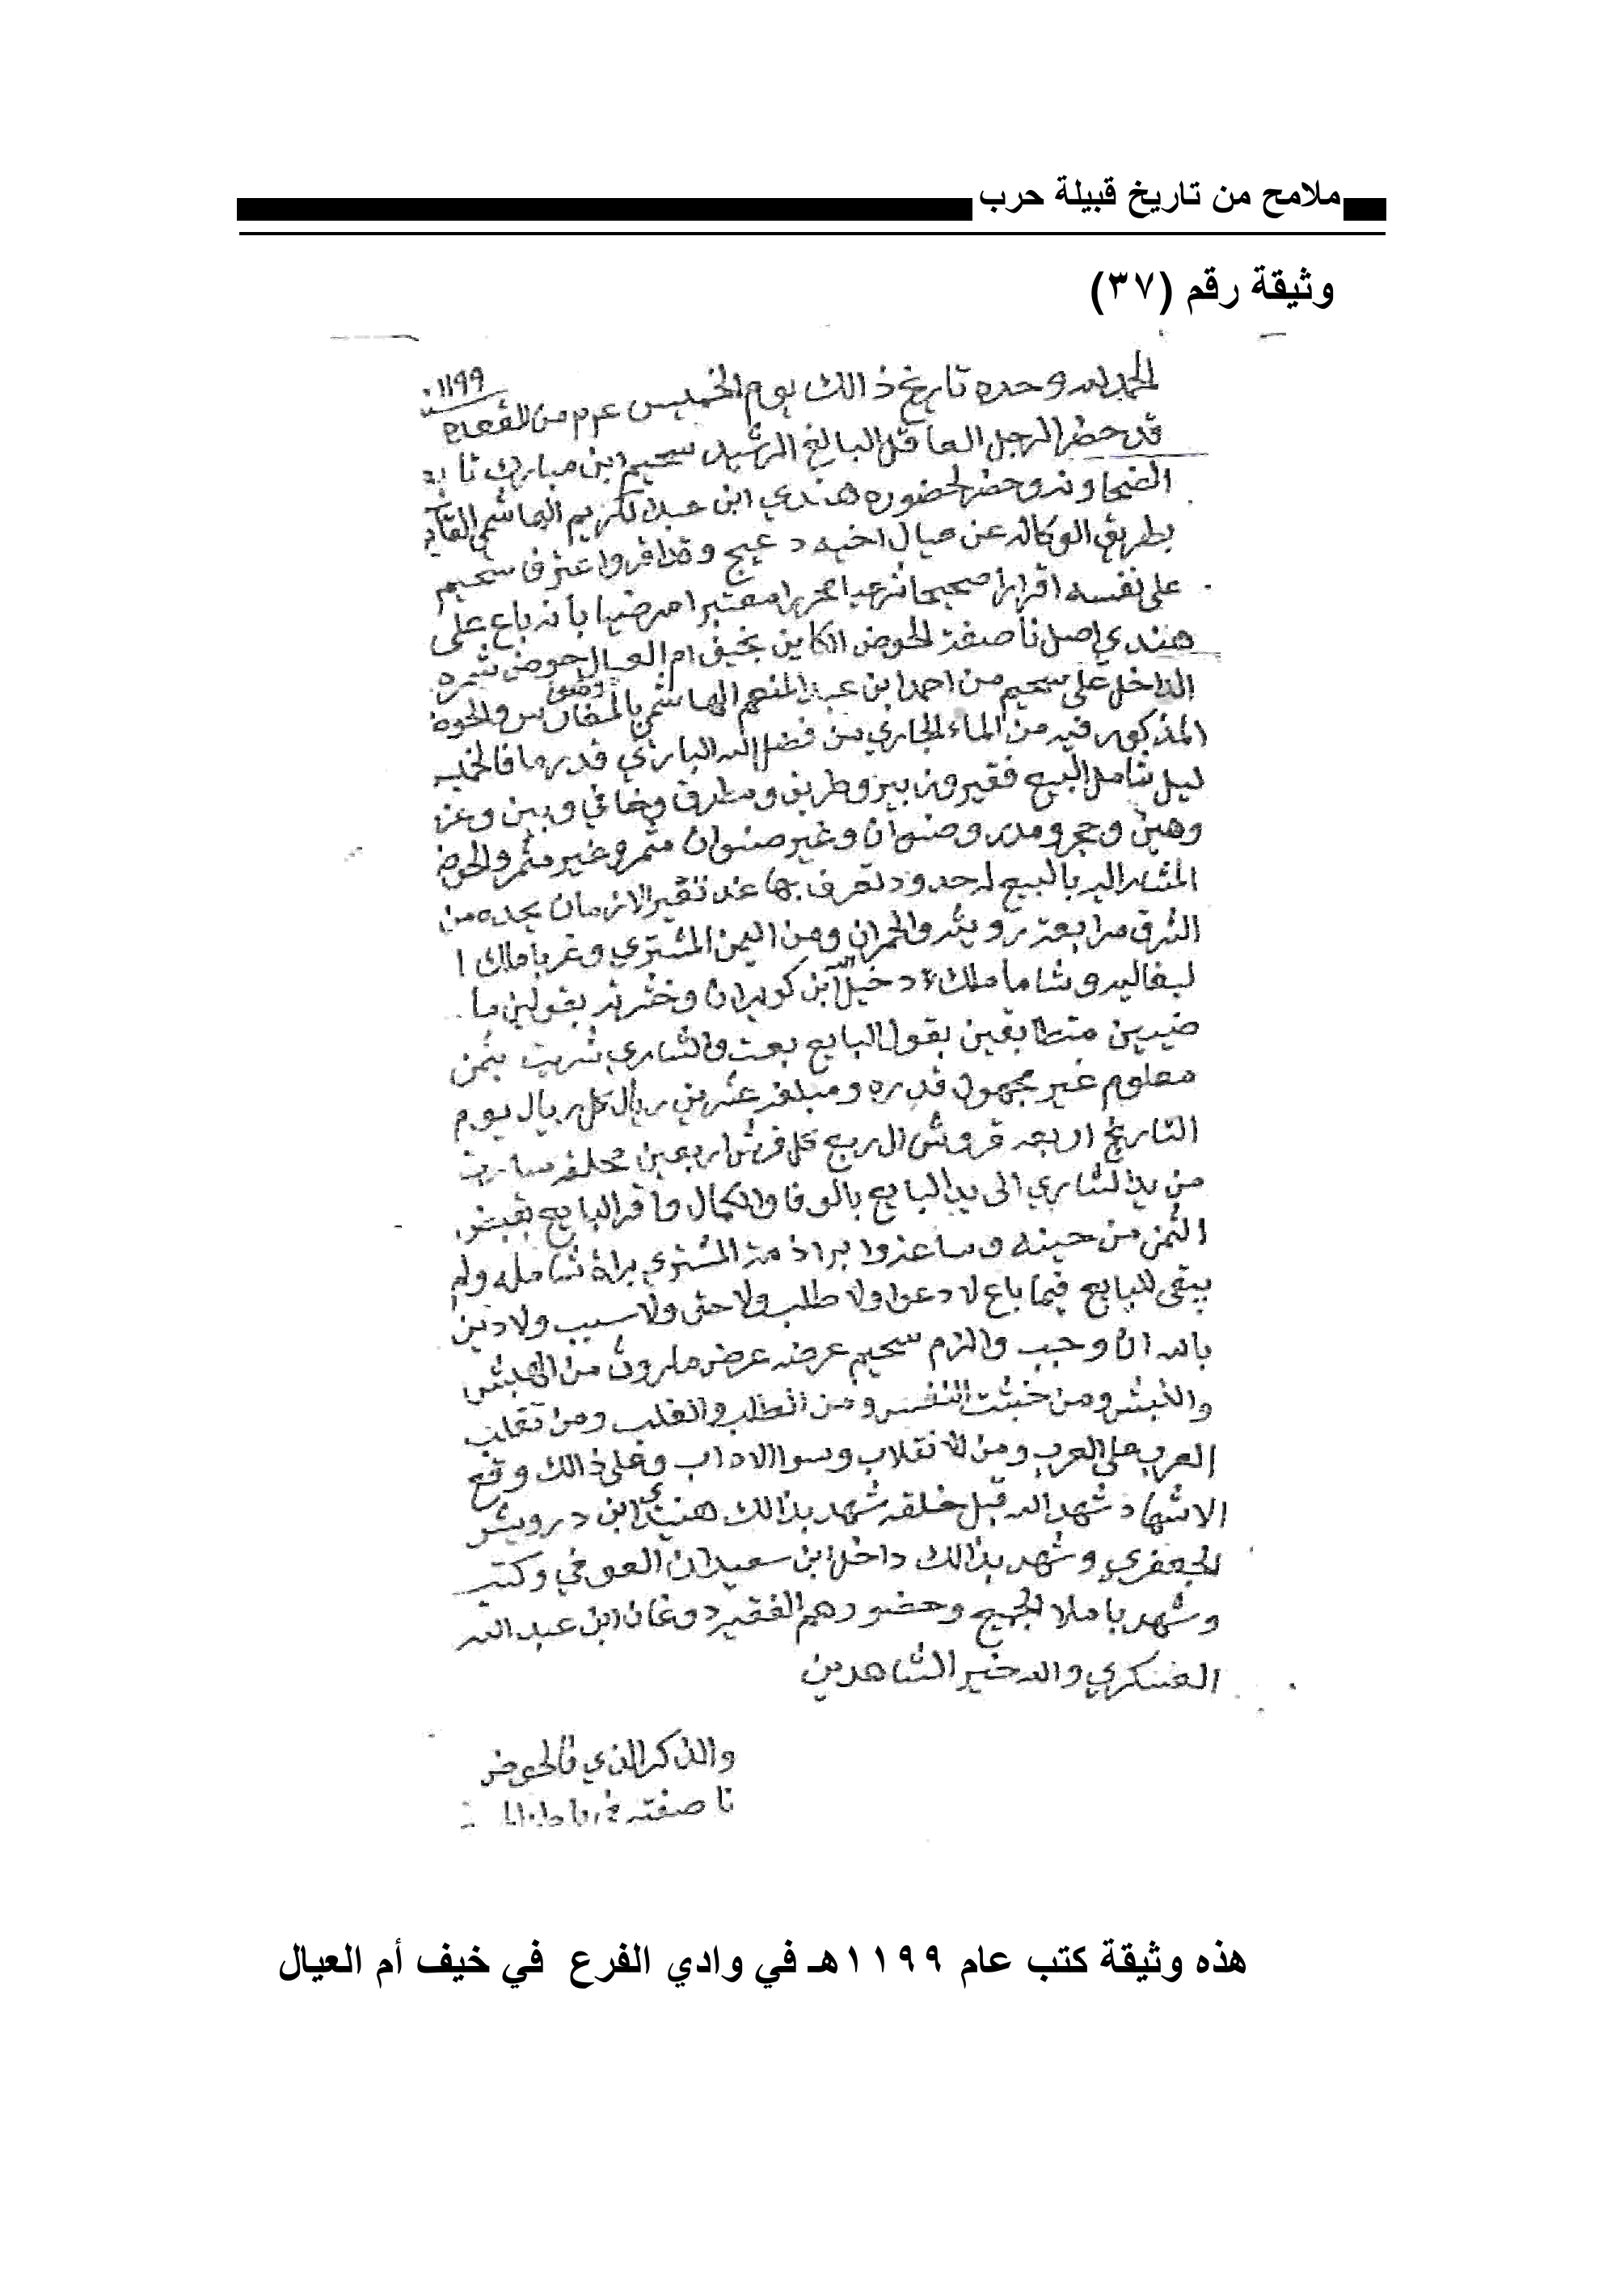 ملامح من تاريخ قبيلة حرب
وثيقة رقم (٣٧)
١١٩٩
الحمد لله وحده تاريخ ذالك يوم الخميس عرم من
قد حضر الرجل العاقل البالغ الرشيد سحيم ابن مبارك
وحضر لحضوره هندي ابن عبد الكريم الهاشمي
بطريق الوكاله عن عيال اخيه دعيج وقد اقر واعترف سحيم
على نفسه اقرارا صحيحا شرعيا معتبرا مرضيا بأنه باع على
هندي اصل ناصفة الحوض الكاين بخيف ام العيال حوض
الداخل على سحيم من احمد ابن عبد المنعم الهاشمي
المذكور فيه من الماء الجاري من فضل الله الباري قدرها
ليل شامل البيع وطريق ومطرق وخافي وبين
وحجر ومدر وصنوان وغير صنوان مثمر وغير مثمر والحوض
المشار اليه بالبيع له حدود تعرف بها عند تغير الازمان يحده من
الشرق ومن اليمن المشتري وغربا ملك ا
وشاما ملك دخيل الله ابن
متطابقين بقول البايع بعت والشاري شريت بثمن
معلوم غير مجهول قدره ومبلغه عشرين ريال كل ريال يوم
التاريخ اربعه قروش الربع كل قرش اربعين محلقه
من يد الشاري الى يد البايع بالوفا والكمال واقر البايع بقبض
الثمن من حينه وساعته وا برا ذمة المشتري براة شامله ولم
يبقى للبايع فيما باع لا دعوا ولا طلب ولا حق ولا سبب ولا دين
بالله ان وجب والزم سحيم عرضه عرض من الهبش
والنبش ومن خبثت النفس ومن الطلب والغلب ومن تقلب
العرب على العرب ومن الانقلاب وسو الاداب وعلى ذالك وقع
الاشهاد شهد الله قبل خلقه شهد بذالك ابن درويش
الجعفري وشهد بذالك داخل ابن سعيدان العوفي وكتب
وشهد باملا الجميع وحضورهم الفقير دوغان ابن عبد الله
العسكري والله خير الشاهدين
والذكر الذي فالحوض
ناصفته
هذه وثيقة كتب عام ١١٩٩هـ في وادي الفرع في خيف أم العيال